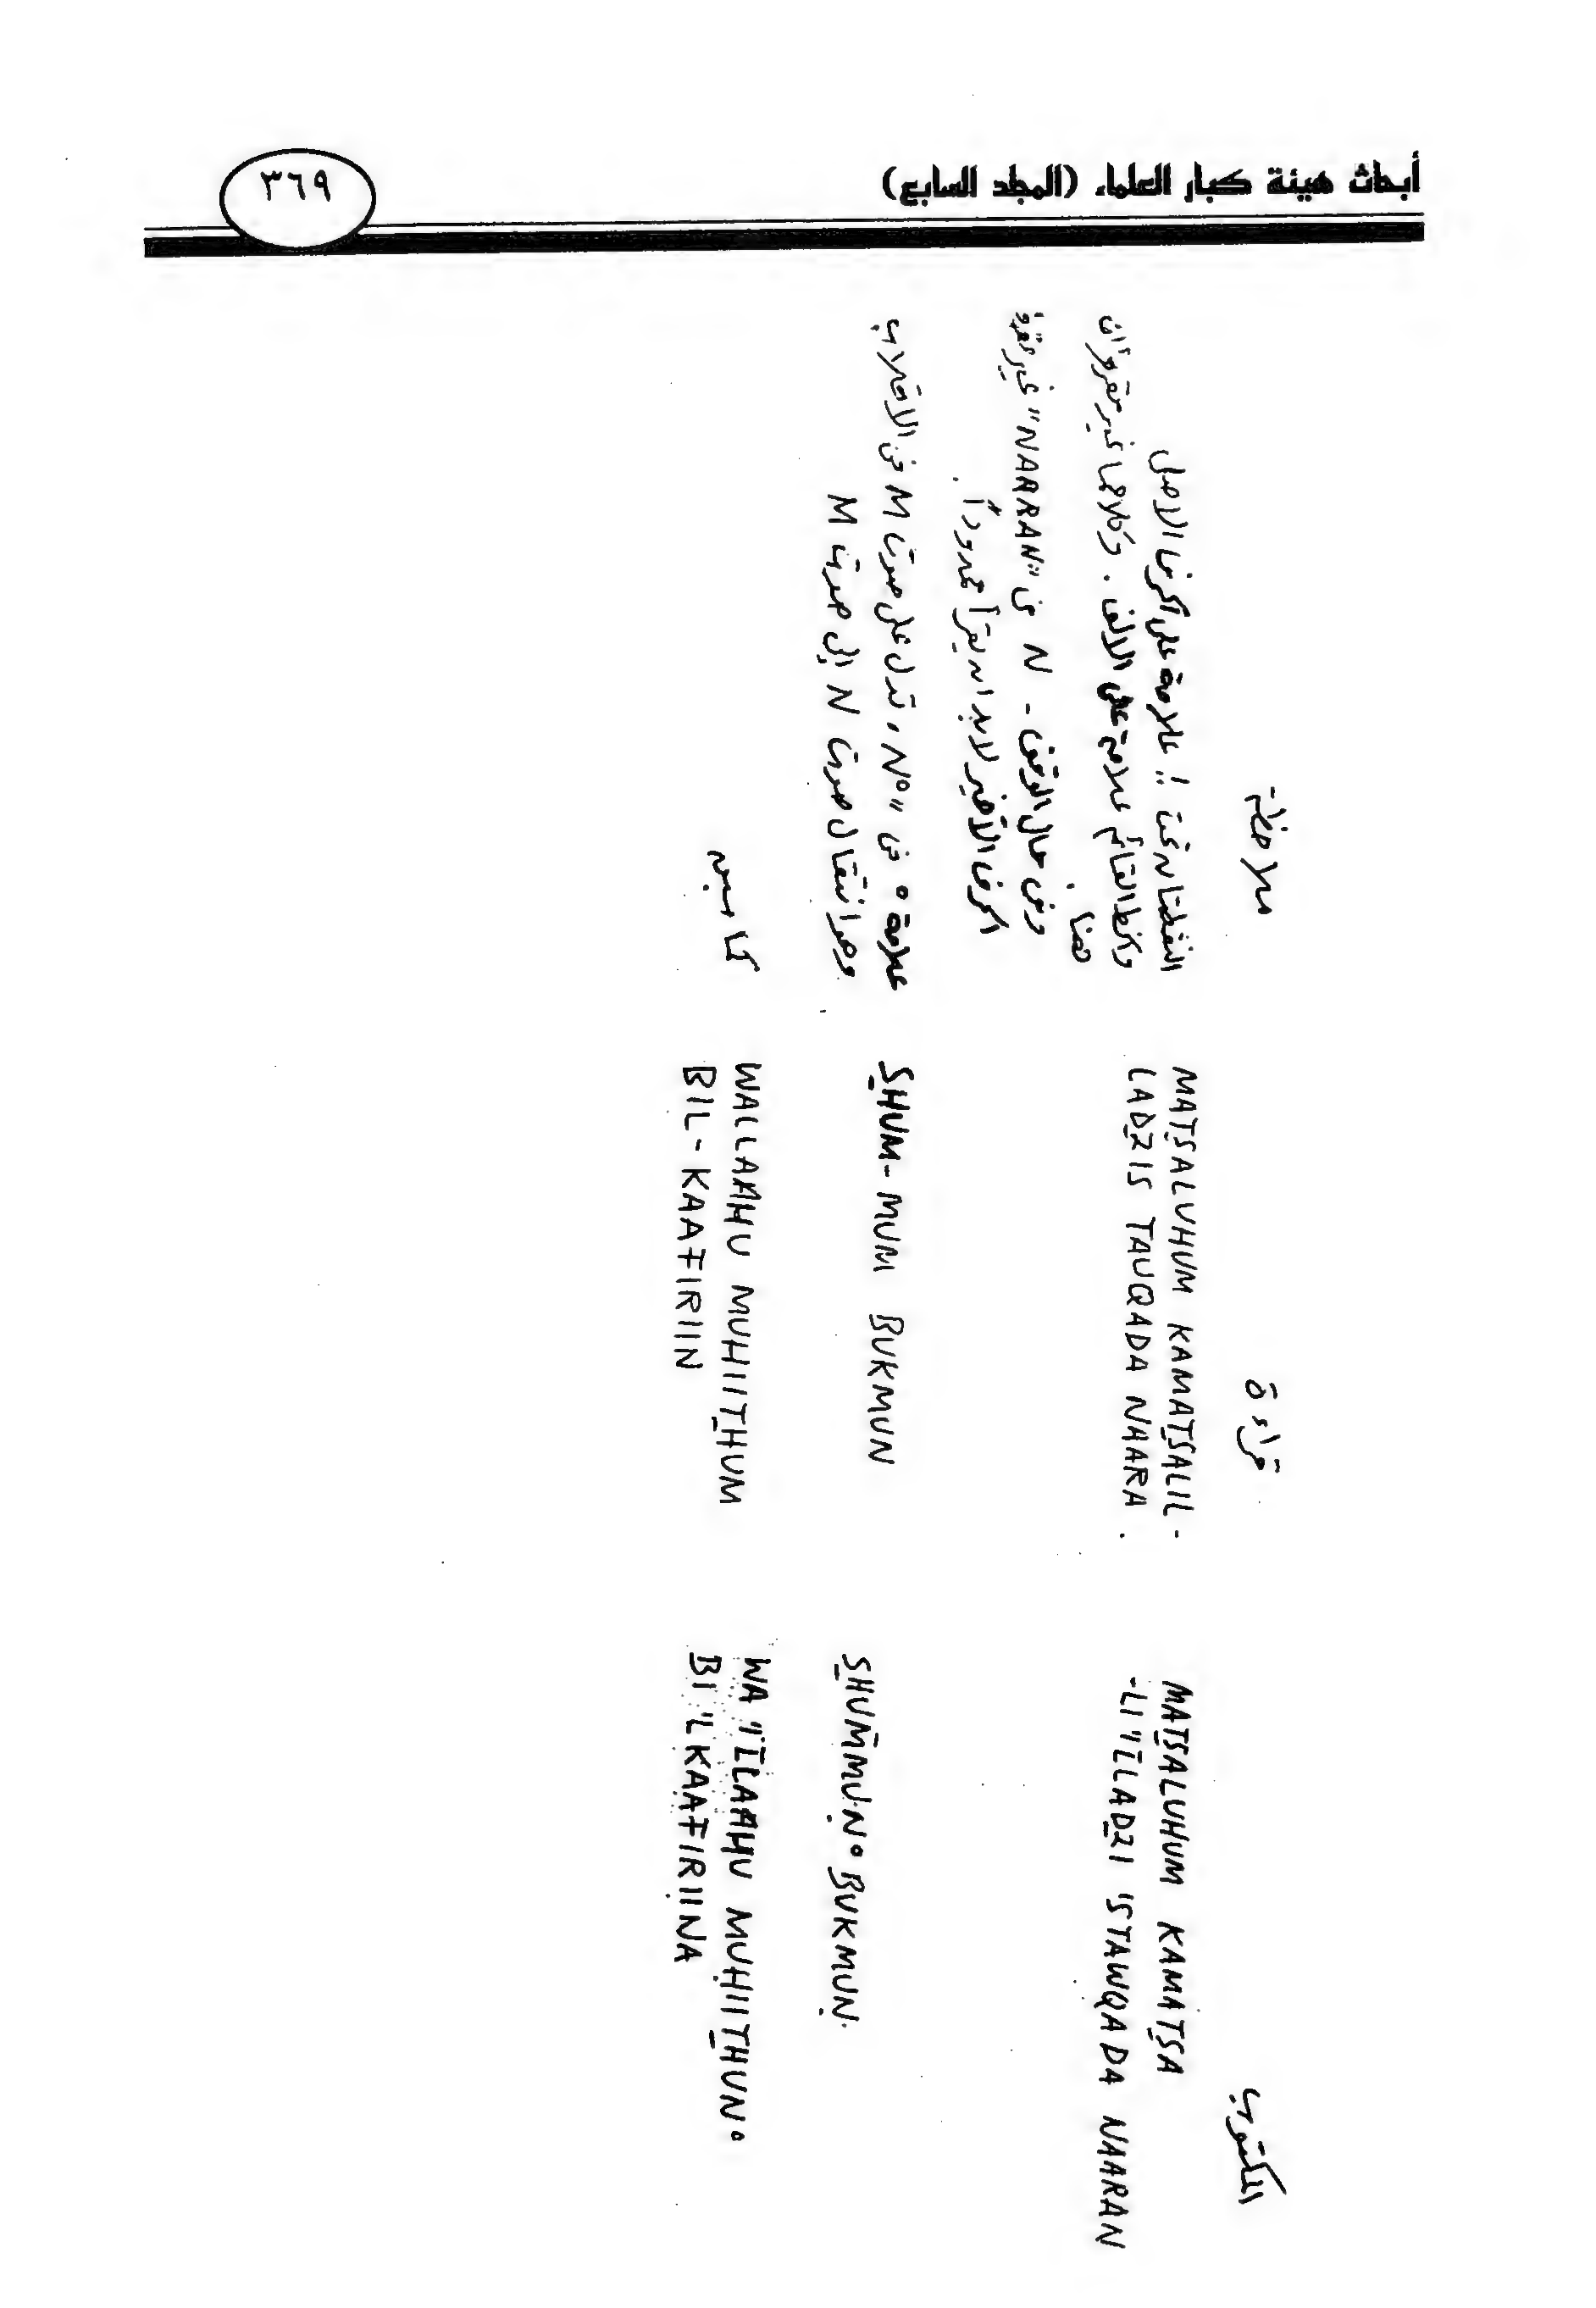 أبحاث هيئة كبار العلماء (المجلد السابع)
٣٦٩
المكتوب
قراءة
ملاحظة
MAṮSALUHUM KAMAṮSA
-LI 'ĪLADZI 'STAWQADA NAARAN
MATSALUHUM KAMATSALIL-
LADZIS TAUQADA NAARA .
النقطتان تحت !! علامة على الحرف الاصلي
والخط القائم علامة على الالف . وكلاهما غير مقروءان
هنا .
وفى حال الوقف - N فى "NAARAN" غير مقروء
الحرف الأخير لابد ان يقرأ ممدوداً .
SHUMMUN° BUKMUN
SHUM-MUM BUKMUN
علامة ° فى "N°" تدل على صوت M فى الاقلاب
وهو انتقال صوت N الى صوت M
WA 'ĪLAAHU MUHIITHUN°
BI 'LKAAFIRIINA
WALLAAHU MUHIITHUM
BIL-KAAFIRIIN
كما سبق